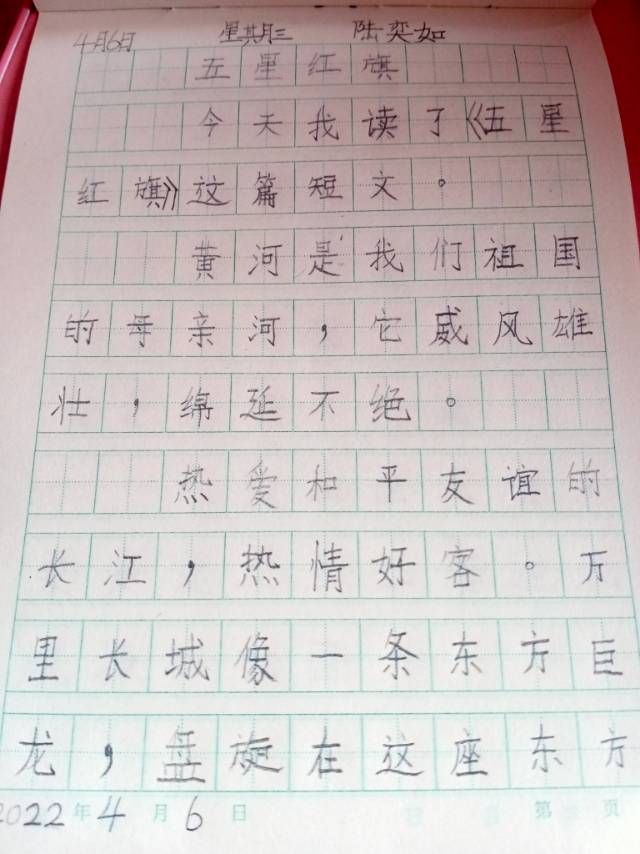 4月6日 星期三 陆奕如
五星红旗
今天我读了《五星
红旗》这篇短文。
黄河是我们祖国
的母亲河，它威风雄
壮，绵延不绝。
热爱和平友谊的
长江，热情好客。万
里长城像一条东方巨
龙，盘旋在这座东方
2022年4月6日 第 页